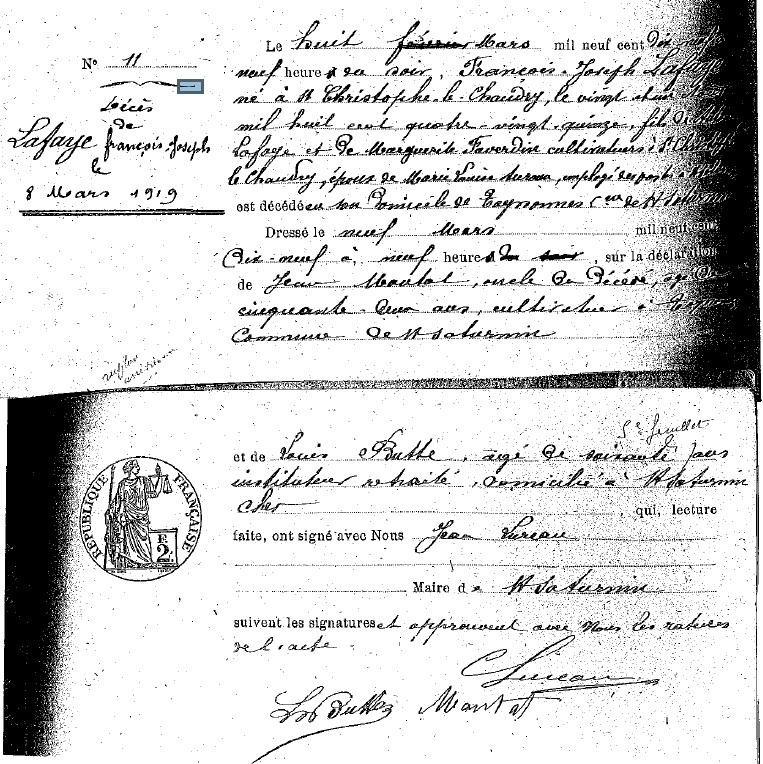 N° 11
Décès
de
Lafaye François-Joseph
le
8 Mars 1919
Le huit février Mars mil neuf cent dix
neuf heures du soir, François-Joseph Lafaye
né à St Christophe-le-Chaudry, le vingt et un
mil huit cent quatre vingt quinze, fils de
Lafaye et de Marguerite Taverdin cultivateurs à St
le Chaudry, époux de Marie Louise Lureau, employé des postes à
est décédé en son domicile de Cne de St Saturnin
Dressé le neuf Mars mil neuf cent
Dix-neuf à, neuf heures du soir, sur la déclaration
de Jean Mautat, oncle du décédé, âgé de
cinquante-deux ans, cultivateur à
Commune de St Saturnin
5e feuillet
et de Louis Butte, âgé de soixante ans
instituteur retraité, domicilié à St Saturnin
Cher, qui, lecture
faite, ont signé avec Nous Jean Lureau
Maire de St Saturnin
suivent les signatures et approuvent avec Nous les ratures
de l'acte.
Lureau
Ls Butte Mautat
RÉPUBLIQUE FRANÇAISE
2